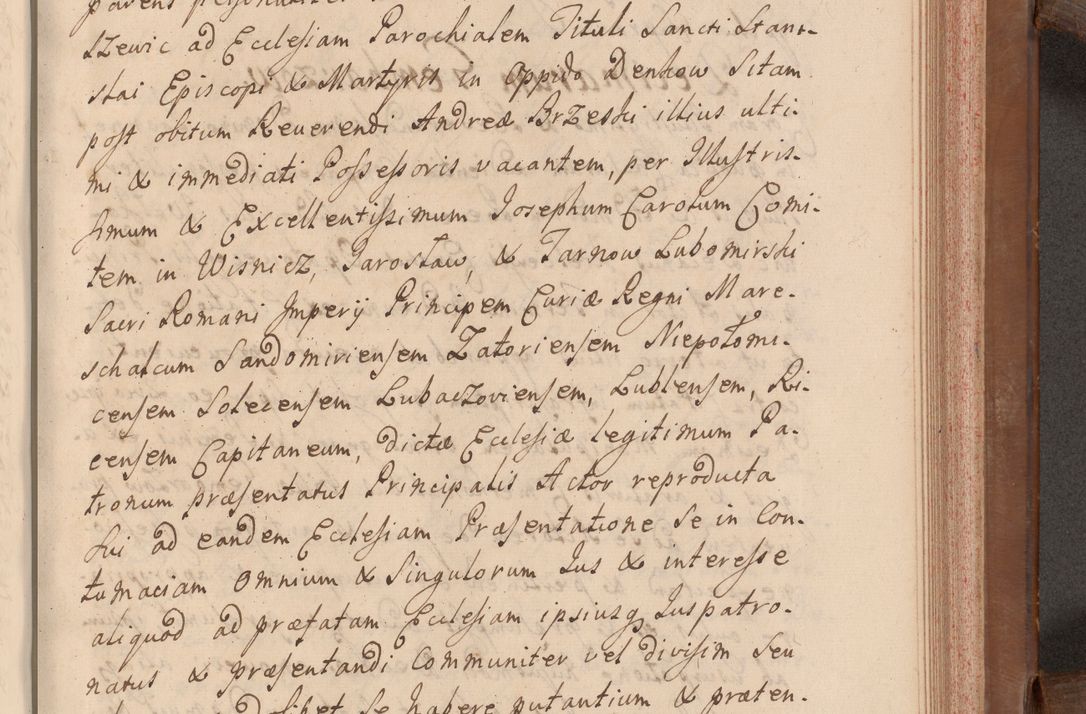 szewic ad Ecclesiam Parochialem Tituli Sancti Stani-
slai Episcopi & Martyris in Oppido Denkow Sitam
post obitum Reuerendi Andreæ Brzeski illius ulti-
mi & immediati Possessoris vacantem, per Illustris-
simum & Excellentissimum Josephum Carolum Comi-
tem in Wisnicz, Jarosław, & Tarnow Lubomirski
Sacri Romani Imperij Principem Curiæ Regni Mare-
schalcum Sandomiriensem Zatoriensem Niepołomi-
censem Solecensem Lubaczoviensem, Lublensem, Ri-
censem Capitaneum, dictæ Ecclesiæ legitimum Pa-
tronum præsentatus Principalis Actor reproducta
sui ad eandem Ecclesiam Præsentatione se in Con-
tumaciam omnium & Singulorum Jus & interesse
aliquod ad præfatam Ecclesiam ipsiusq Juspatro-
natus & præsentandi Communiter vel divisim seu
se habere putantium & præten-